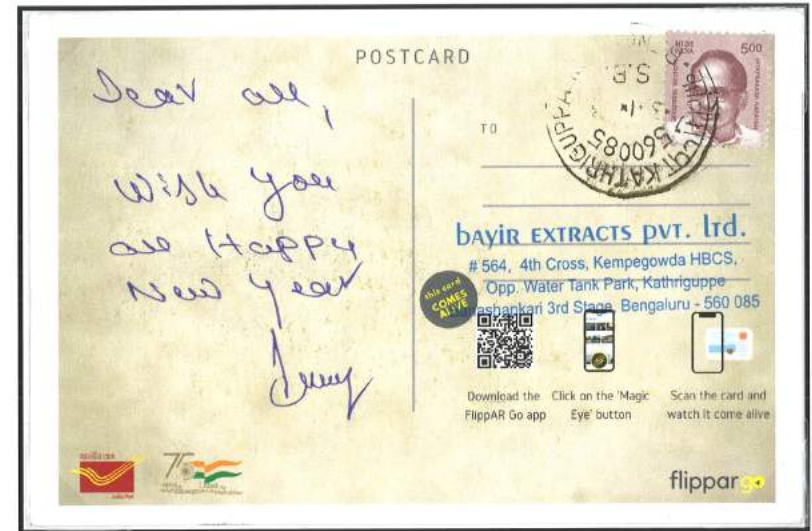 POSTCARD
Dear all,
Wish you
all Happy
New Year
TO
5.00
560085
KATHRIGUPPA
bayir EXTRACTS pvt. ltd.
# 564, 4th Cross, Kempegowda HBCS,
Opp. Water Tank Park, Kathriguppe
3rd Stage, Bengaluru - 560 085
this card
COMES
ALIVE
Download the
FlippAR Go app
Click on the 'Magic
Eye' button
Scan the card and
watch it come alive
India Post
75
flippar go